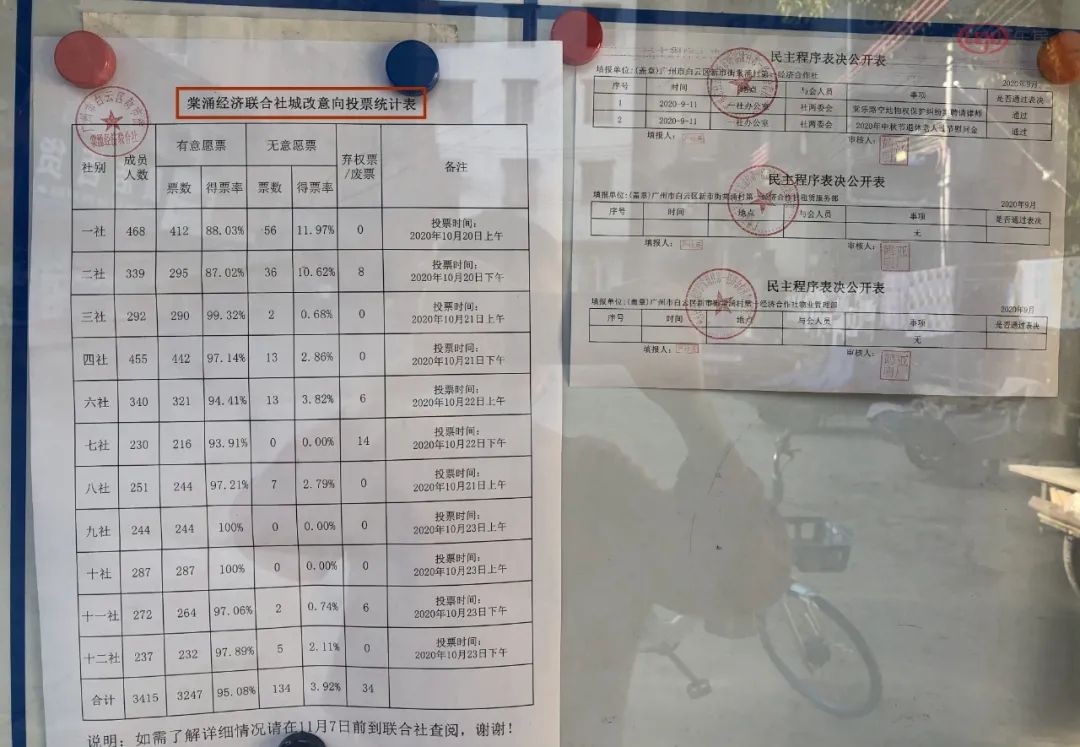 棠涌经济联合社城改意向投票统计表
社别 成员人数 有意愿票 无意愿票 弃权票/废票 备注
票数 得票率 票数 得票率
一社 468 412 88.03% 56 11.97% 0 投票时间：2020年10月20日上午
二社 339 295 87.02% 36 10.62% 8 投票时间：2020年10月20日下午
三社 292 290 99.32% 2 0.68% 0 投票时间：2020年10月21日上午
四社 455 442 97.14% 13 2.86% 0 投票时间：2020年10月21日下午
六社 340 321 94.41% 13 3.82% 6 投票时间：2020年10月22日上午
七社 230 216 93.91% 0 0.00% 14 投票时间：2020年10月22日下午
八社 251 244 97.21% 7 2.79% 0 投票时间：2020年10月21日上午
九社 244 244 100% 0 0.00% 0 投票时间：2020年10月23日上午
十社 287 287 100% 0 0.00% 0 投票时间：2020年10月23日上午
十一社 272 264 97.06% 2 0.74% 6 投票时间：2020年10月23日下午
十二社 237 232 97.89% 5 2.11% 0 投票时间：2020年10月23日下午
合计 3415 3247 95.08% 134 3.92% 34
说明：如需了解详细情况请在11月7日前到联合社查阅，谢谢！
民主程序表决公开表
填报单位：(盖章)广州市白云区新市街棠涌村第一经济合作社 2020年9月
序号 时间 地点 与会人员 事项 是否通过表决
1 2020-9-11 一社办公室 社两委会 通过
2 2020-9-11 一社办公室 社两委会 2020年中秋节退休老人节慰问金 通过
填报人： 审核人：
民主程序表决公开表
填报单位：(盖章)广州市白云区新市街棠涌村第一经济合作社租赁服务部 2020年9月
序号 时间 地点 与会人员 事项 是否通过表决
无
填报人： 审核人：
民主程序表决公开表
填报单位：(盖章)广州市白云区新市街棠涌村第一经济合作社物业管理部 2020年9月
序号 时间 地点 与会人员 事项 是否通过表决
无
填报人： 审核人：